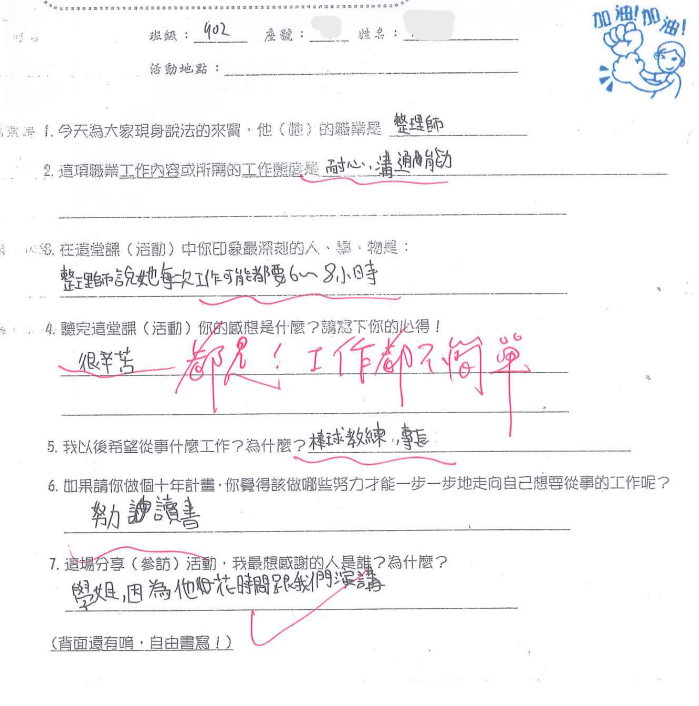 加油!加油!
班級：902 座號： 姓名：
活動地點：
1. 今天為大家現身說法的來賓，他（她）的職業是 整理師
2. 這項職業工作內容或所需的工作態度是 耐心，溝通能力
3. 在這堂課（活動）中你印象最深刻的人、事、物是：
整理師說她每次工作可能都要6~8小時
4. 聽完這堂課（活動）你的感想是什麼？請寫下你的心得！
很辛苦
都是！工作都不簡單
5. 我以後希望從事什麼工作？為什麼？棒球教練，專長
6. 如果請你做個十年計畫，你覺得該做哪些努力才能一步一步地走向自己想要從事的工作呢？
努力讀書
7. 這場分享（參訪）活動，我最想感謝的人是誰？為什麼？
學姐，因為他花時間跟我們演講
（背面還有唷，自由書寫！）